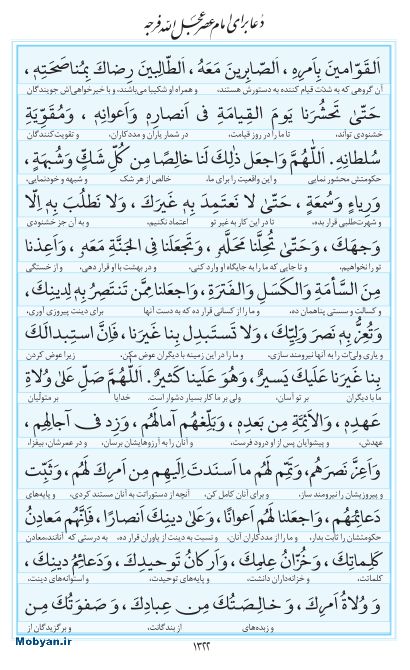 دعا برای امام عصر عجل الله فرجه
اَلقَوّامينَ بِاَمرِهٖ ، اَلصّابِرينَ مَعَهُ ، اَلطّالِبينَ رِضاكَ بِمُناصَحَتِهٖ ،
آن گروهی که به شدّت قیام کننده به دستورش هستند، و همراه او شکیبا می‌باشند، و با خیرخواهی‌اش جویندگان
حَتّىٰ تَحشُرَنا يَومَ القِيامَةِ فى اَنصارِهٖ وَاَعوانِهٖ ، وَمُقَوِّيَةِ
خشنودی تواند، تا ما را در روز قیامت، در شمار یاران و مددکاران، و تقویت‌کنندگان
سُلطانِهٖ. اَللّٰهُمَّ وَاجعَل ذٰلِكَ لَنا خالِصًا مِن كُلِّ شَكٍّ وَشُبهَةٍ ،
حکومتش محشور نمایی و این واقعیت را برای ما، خالص از هر شک و شبهه و خودنمایی،
وَرِياءٍ وَسُمعَةٍ ، حَتّىٰ لا نَعتَمِدَ بِهٖ غَيرَكَ ، وَلا نَطلُبَ بِهٖ اِلّا
و شهرت‌طلبی قرار بده. تا در این کار به غیر تو اعتماد نکنیم، و به آن جز خشنودی
وَجهَكَ ، وَحَتّىٰ تُحِلَّنا مَحَلَّهُ ، وَتَجعَلَنا فِى الجَنَّةِ مَعَهُ ، وَاَعِذنا
تو را نخواهیم، و تا جایی که ما را به جایگاه او وارد کنی، و در بهشت با او قرار دهی، و از خستگی
مِنَ السَّأمَةِ وَالكَسَلِ وَالفَترَةِ ، وَاجعَلنا مِمَّن تَنتَصِرُ بِهٖ لِدينِكَ ،
و کسالت و سستی پناهمان ده، و ما را از کسانی قرار ده که به دست آنها برای دینت پیروزی آوری،
وَتُعِزُّ بِهٖ نَصرَ وَلِيِّكَ ، وَلا تَستَبدِل بِنا غَيرَنا ، فَاِنَّ استِبدالَكَ
و یاری ولی‌ات را به آنها نیرومند سازی، و ما را در این زمینه با دیگران عوض مکن، زیرا عوض کردن
بِنا غَيرَنا عَلَيكَ يَسيرٌ ، وَهُوَ عَلَينا كَثيرٌ. اَللّٰهُمَّ صَلِّ عَلىٰ وُلاةِ
ما با دیگران بر تو آسان، ولی بر ما کار بسیار دشوار است. خدایا بر متولیان
عَهدِهٖ ، وَالاَئِمَّةِ مِن بَعدِهٖ ، وَبَلِّغهُم آمالَهُم ، وَزِد فى آجالِهِم ،
عهدش، و پیشوایان پس از او درود فرست، و آنان را به آرزوهایشان برسان، و در عمرشان، بیفزا،
وَاَعِزَّ نَصرَهُم ، وَتَمِّم لَهُم ما اَسنَدتَ اِلَيهِم مِن اَمرِكَ لَهُم ، وَثَبِّت
و پیروزیشان را نیرومند ساز، و برای آنان کامل کن، آنچه از دستوراتت به آنان مستند کردی، و پایه‌های
دَعائِمَهُم ، وَاجعَلنا لَهُم اَعوانًا ، وَعَلىٰ دينِكَ اَنصارًا ، فَاِنَّهُم مَعادِنُ
حکومتشان را ثابت بدار، و ما را از مددکاران آنان، و نسبت به دینت از یاوران قرار ده، به درستی که آنانند،معادن
كَلِماتِكَ ، وَخُزّانُ عِلمِكَ ، وَاَركانُ تَوحيدِكَ ، وَدَعائِمُ دينِكَ ،
کلماتت، و خزانه‌داران دانشت، و پایه‌های توحیدت، و استوانه‌های دینت،
وَ وُلاةُ اَمرِكَ ، وَ خالِصَتُكَ مِن عِبادِكَ ، وَ صَفوَتُكَ مِن
و زبده‌های از بندگانت، و برگزیدگان از
۱۳۲۲
Mobyan.ir